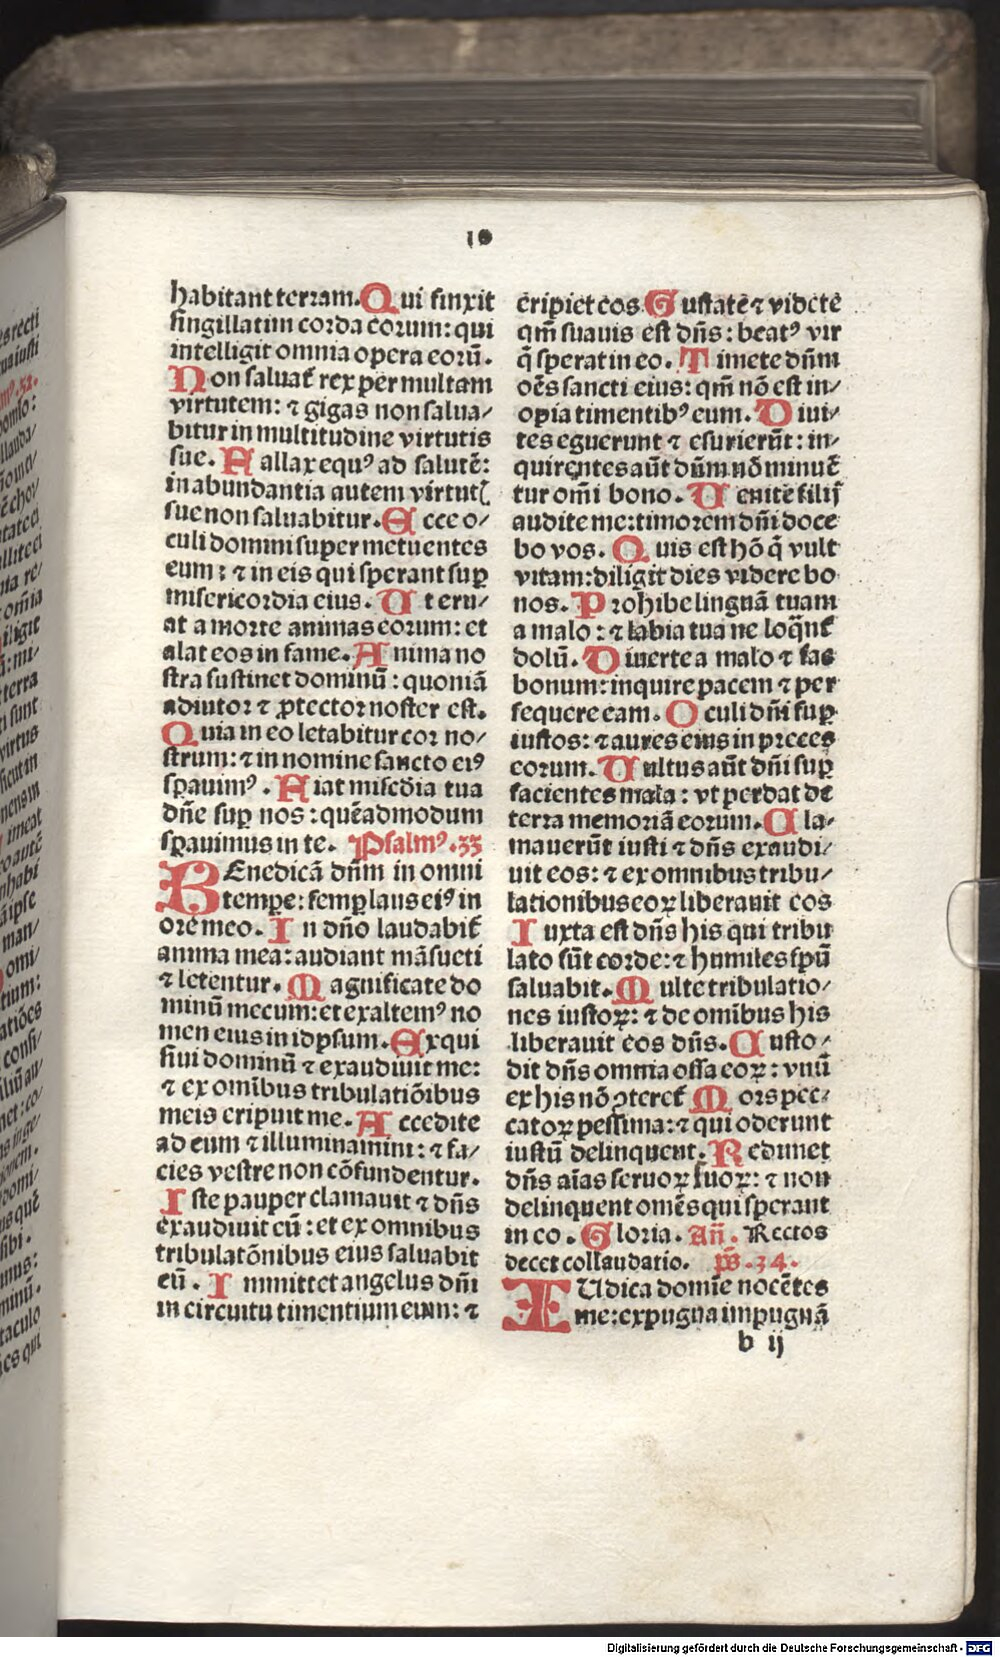 10
habitant terram. Qui finxit
singillatim corda eorum: qui
intelligit omnia opera eorū.
Non saluat᷑ rex per multam
virtutem: ⁊ gigas non salua⸗
bitur in multitudine virtutis
sue. Fallax equꝰ ad salutē:
in abundantia autem virtutꝭ
sue non saluabitur. Ecce o⸗
culi domini super metuentes
eum: ⁊ in eis qui sperant suꝑ
misericordia eius. Ut eru⸗
at a morte animas eorum: et
alat eos in fame. Anima no
stra sustinet dominū: quoniā
adiutor ⁊ ꝓtector noster est.
Quia in eo letabitur cor no⸗
strum: ⁊ in nomine sancto eiꝰ
sꝑauimꝰ. Fiat miscd̄ia tua
dn̄e suꝑ nos: quēadmodum
sꝑauimus in te. Psalmꝰ.33
BEnedicā dn̄m in omni
tempe: semꝑ laus eiꝰ in
ore meo. In dn̄o laudabit᷑
anima mea: audiant māsueti
⁊ letentur. Magnificate do
minū mecum: et exaltemꝰ no
men eius in idpsum. Exqui
siui dominū ⁊ exaudiuit me:
⁊ ex omībus tribulatiōibus
meis eripuit me. Accedite
ad eum ⁊ illuminamini: ⁊ fa⸗
cies vestre non cōfundentur.
Iste pauper clamauit ⁊ dn̄s
exaudiuit eū: et ex omnibus
tribulatōnibus eius saluabit
eū. Immittet angelus dn̄i
in circuitu timentium eum: ⁊
eripiet eos. Gustate ⁊ videte
qm̄ suauis est dn̄s: beatꝰ vir
q̄ sperat in eo. Timete dn̄m
oēs sancti eius: qm̄ nō est in⸗
opia timentibꝰ eum. Diui⸗
tes eguerunt ⁊ esurierūt: in⸗
quirentes aūt dn̄m nō minuē
tur om̄i bono. Uenite filij
audite me: timorem dn̄i doce
bo vos. Quis est hō q̄ vult
vitam: diligit dies videre bo
nos. Prohibe linguā tuam
a malo: ⁊ labia tua ne loq̄nt᷑
dolū. Diuerte a malo ⁊ fac
bonum: inquire pacem ⁊ per
sequere eam. Oculi dn̄i suꝑ
iustos: ⁊ aures eius in preces
eorum. Uultus aūt dn̄i suꝑ
facientes mala: vt perdat de
terra memoriā eorum. Cla⸗
mauerūt iusti ⁊ dn̄s exaudi⸗
uit eos: ⁊ ex omnibus tribu⸗
lationibus eoꝝ liberauit eos
Iuxta est dn̄s his qui tribu
lato sūt corde: ⁊ humiles spū
saluabit. Multe tribulatio⸗
nes iustoꝝ: ⁊ de omībus his
liberauit eos dn̄s. Custo⸗
dit dn̄s omnia ossa eoꝝ: vnū
ex his nō ꝯteret᷑ Mors pec⸗
catoꝝ pessima: ⁊ qui oderunt
iustū delinquent. Redimet
dn̄s aīas seruoꝝ suoꝝ: ⁊ non
delinquent omēs qui sperant
in eo. Gloria. Añ. Rectos
decet collaudatio. ps̄.34.
IUdica domīe nocētes
me: expugna impugnā
b ij
Digitalisierung gefördert durch die Deutsche Forschungsgemeinschaft - DFG